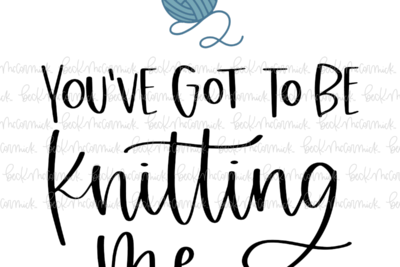 YOU'VE GOT TO BE
knitting
me